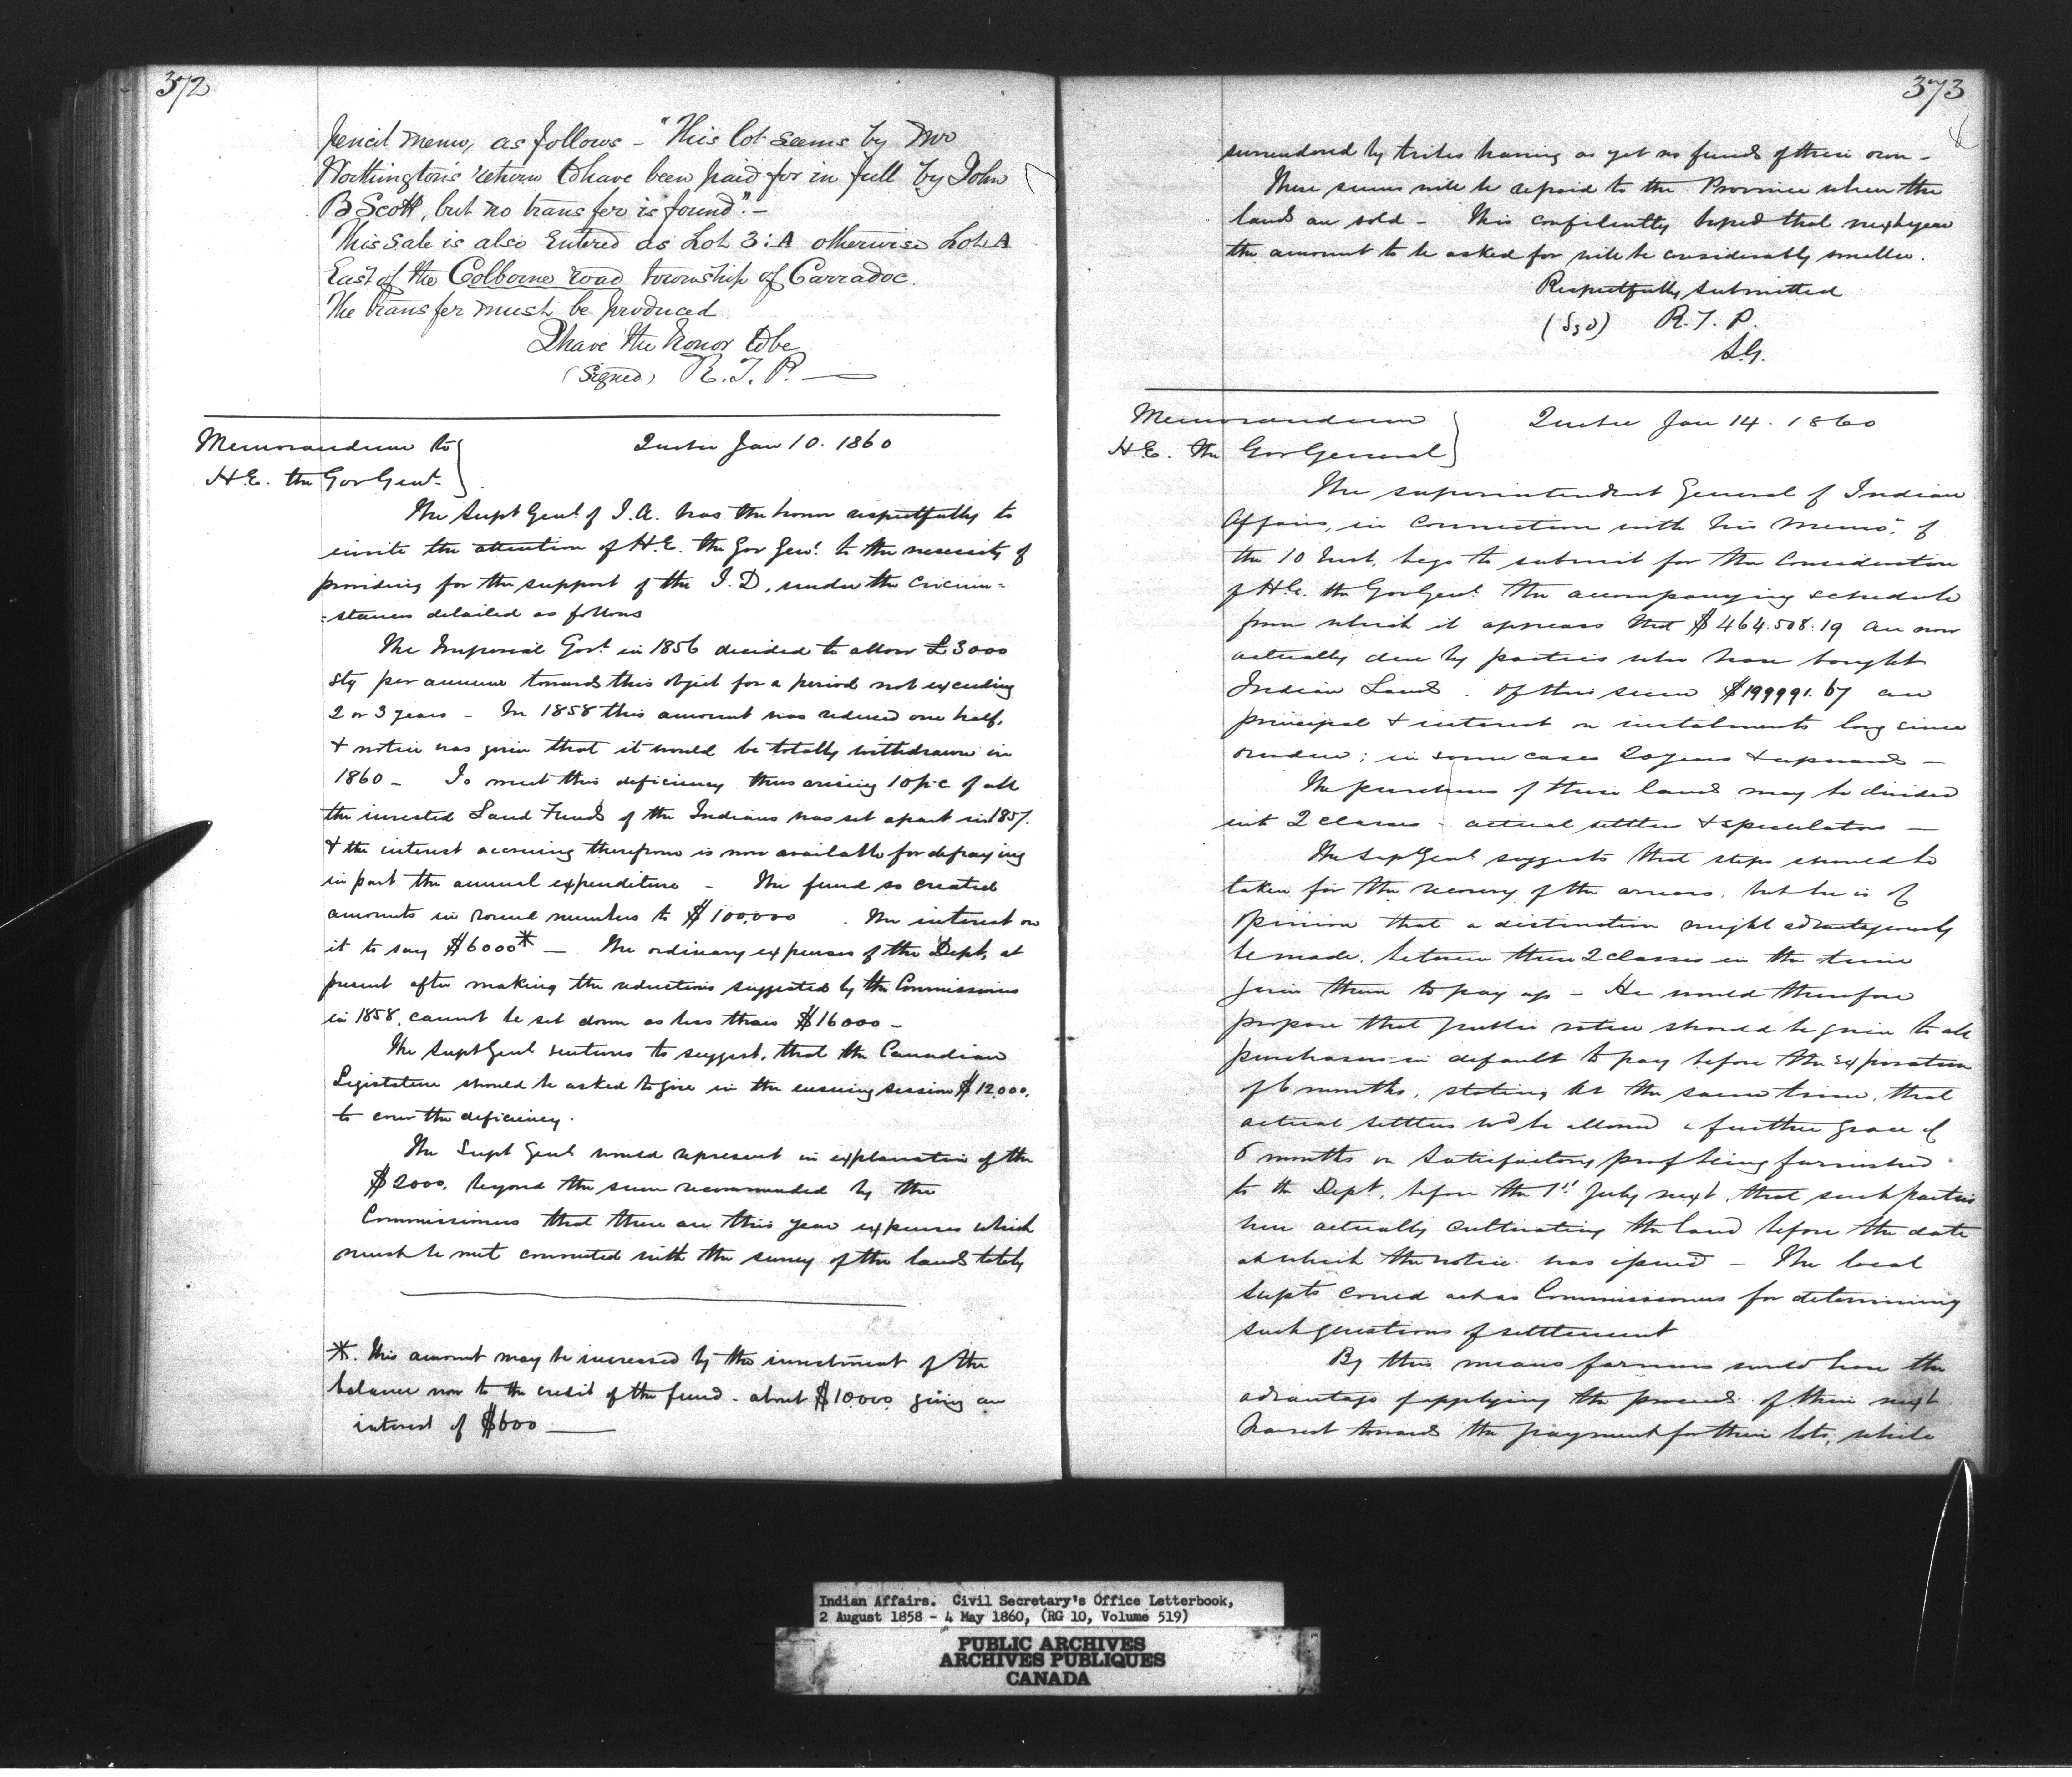 372
pencil memo, as follows - "This lot seems by Mr
Worthington's return to have been paid for in full by John
B Scott, but no transfer is found". -
This sale is also Entered as Lot 3: A otherwise Lot A
East of the Colborne road township of Carradoc.
The transfer must be produced.
I have the honor to be
(Signed) R. T. P. —
Memorandum to
H.E. the Gov Genl.
Quebec Jan 10. 1860
The Supt Genl. of I. A. has the honor respectfully to
invite the attention of H.E. the Gov Genl. to the necessity of
providing for the support of the I. D. under the circum=
=stances detailed as follows
The Imperial Govt. in 1856 decided to allow £3000
stg per annum towards this object for a period not exceeding
2 or 3 years - In 1858 this amount was reduced one half,
& notice was given that it would be totally withdrawn in
1860 - To meet this deficiency thus arising 10 p.c. of all
the invested Land Funds of the Indians was set apart in 1857.
& the interest accruing therefrom is now available for defraying
in part the annual expenditure - The fund so created
amounts in round numbers to $100,000. The interest on
it to say $6000* - The ordinary expenses of the Dept. at
present after making the reductions suggested by the Commissioners
in 1858, cannot be set down as less than $16000 -
The Supt Genl. ventures to suggest, that the Canadian
Legislature should be asked to give in the ensuing session $12,000.
to cover the deficiency.
The Supt Genl. would represent in explanation of the
$2000. beyond the sum recommended by the
Commissioners that there are this year expenses which
must be met connected with the survey of the lands lately
*. This amount may be increased by the investment of the
balance now to the credit of the fund - about $10.000. giving an
interest of $600 —
373
surrendered by tribes having as yet no funds of their own -
These sums will be repaid to the Province when the
lands are sold - This confidently hoped that next year
the amount to be asked for will be considerably smaller.
Respectfully submitted
(Sgd) R. T. P.
S.G.
Memorandum
H.E. the Gov General
Quebec Jan 14. 1860
The superintendent General of Indian
Affairs, in connection with his memo. of
the 10 Inst, begs to submit for the Consideration
of H.E. the Gov Genl. the accompanying schedule
from which it appears that $464.508.19 are now
actually due by parties who have bought
Indian Lands. Of this sum $199991.67 are
principal & interest on instalments long since
overdue; in some cases 20 years & upwards -
The purchasers of these lands may be divided
into 2 classes - actual settlers & speculators -
The Sup Genl. suggests that steps should be
taken for the recovery of the arrears, but he is of
opinion that a distinction might advantageously
be made, between these 2 classes in the time
given them to pay up - He would therefore
propose that public notice should be given to all
purchasers in default to pay before the expiration
of 6 months, stating at the same time, that
actual settlers wd be allowed a further grace of
6 months on satisfactory proof being furnished
to the Dept, before the 1st July next, that such parties
were actually cultivating the land before the date
at which the notice was issued - The local
Supts could act as Commissioners for determining
such questions of settlement
By this means farmers would have the
advantage of applying the proceeds of their next
harvest towards the payment for their lots, while
Indian Affairs. Civil Secretary's Office Letterbook,
2 August 1858 - 4 May 1860, (RG 10, Volume 519)
PUBLIC ARCHIVES
ARCHIVES PUBLIQUES
CANADA